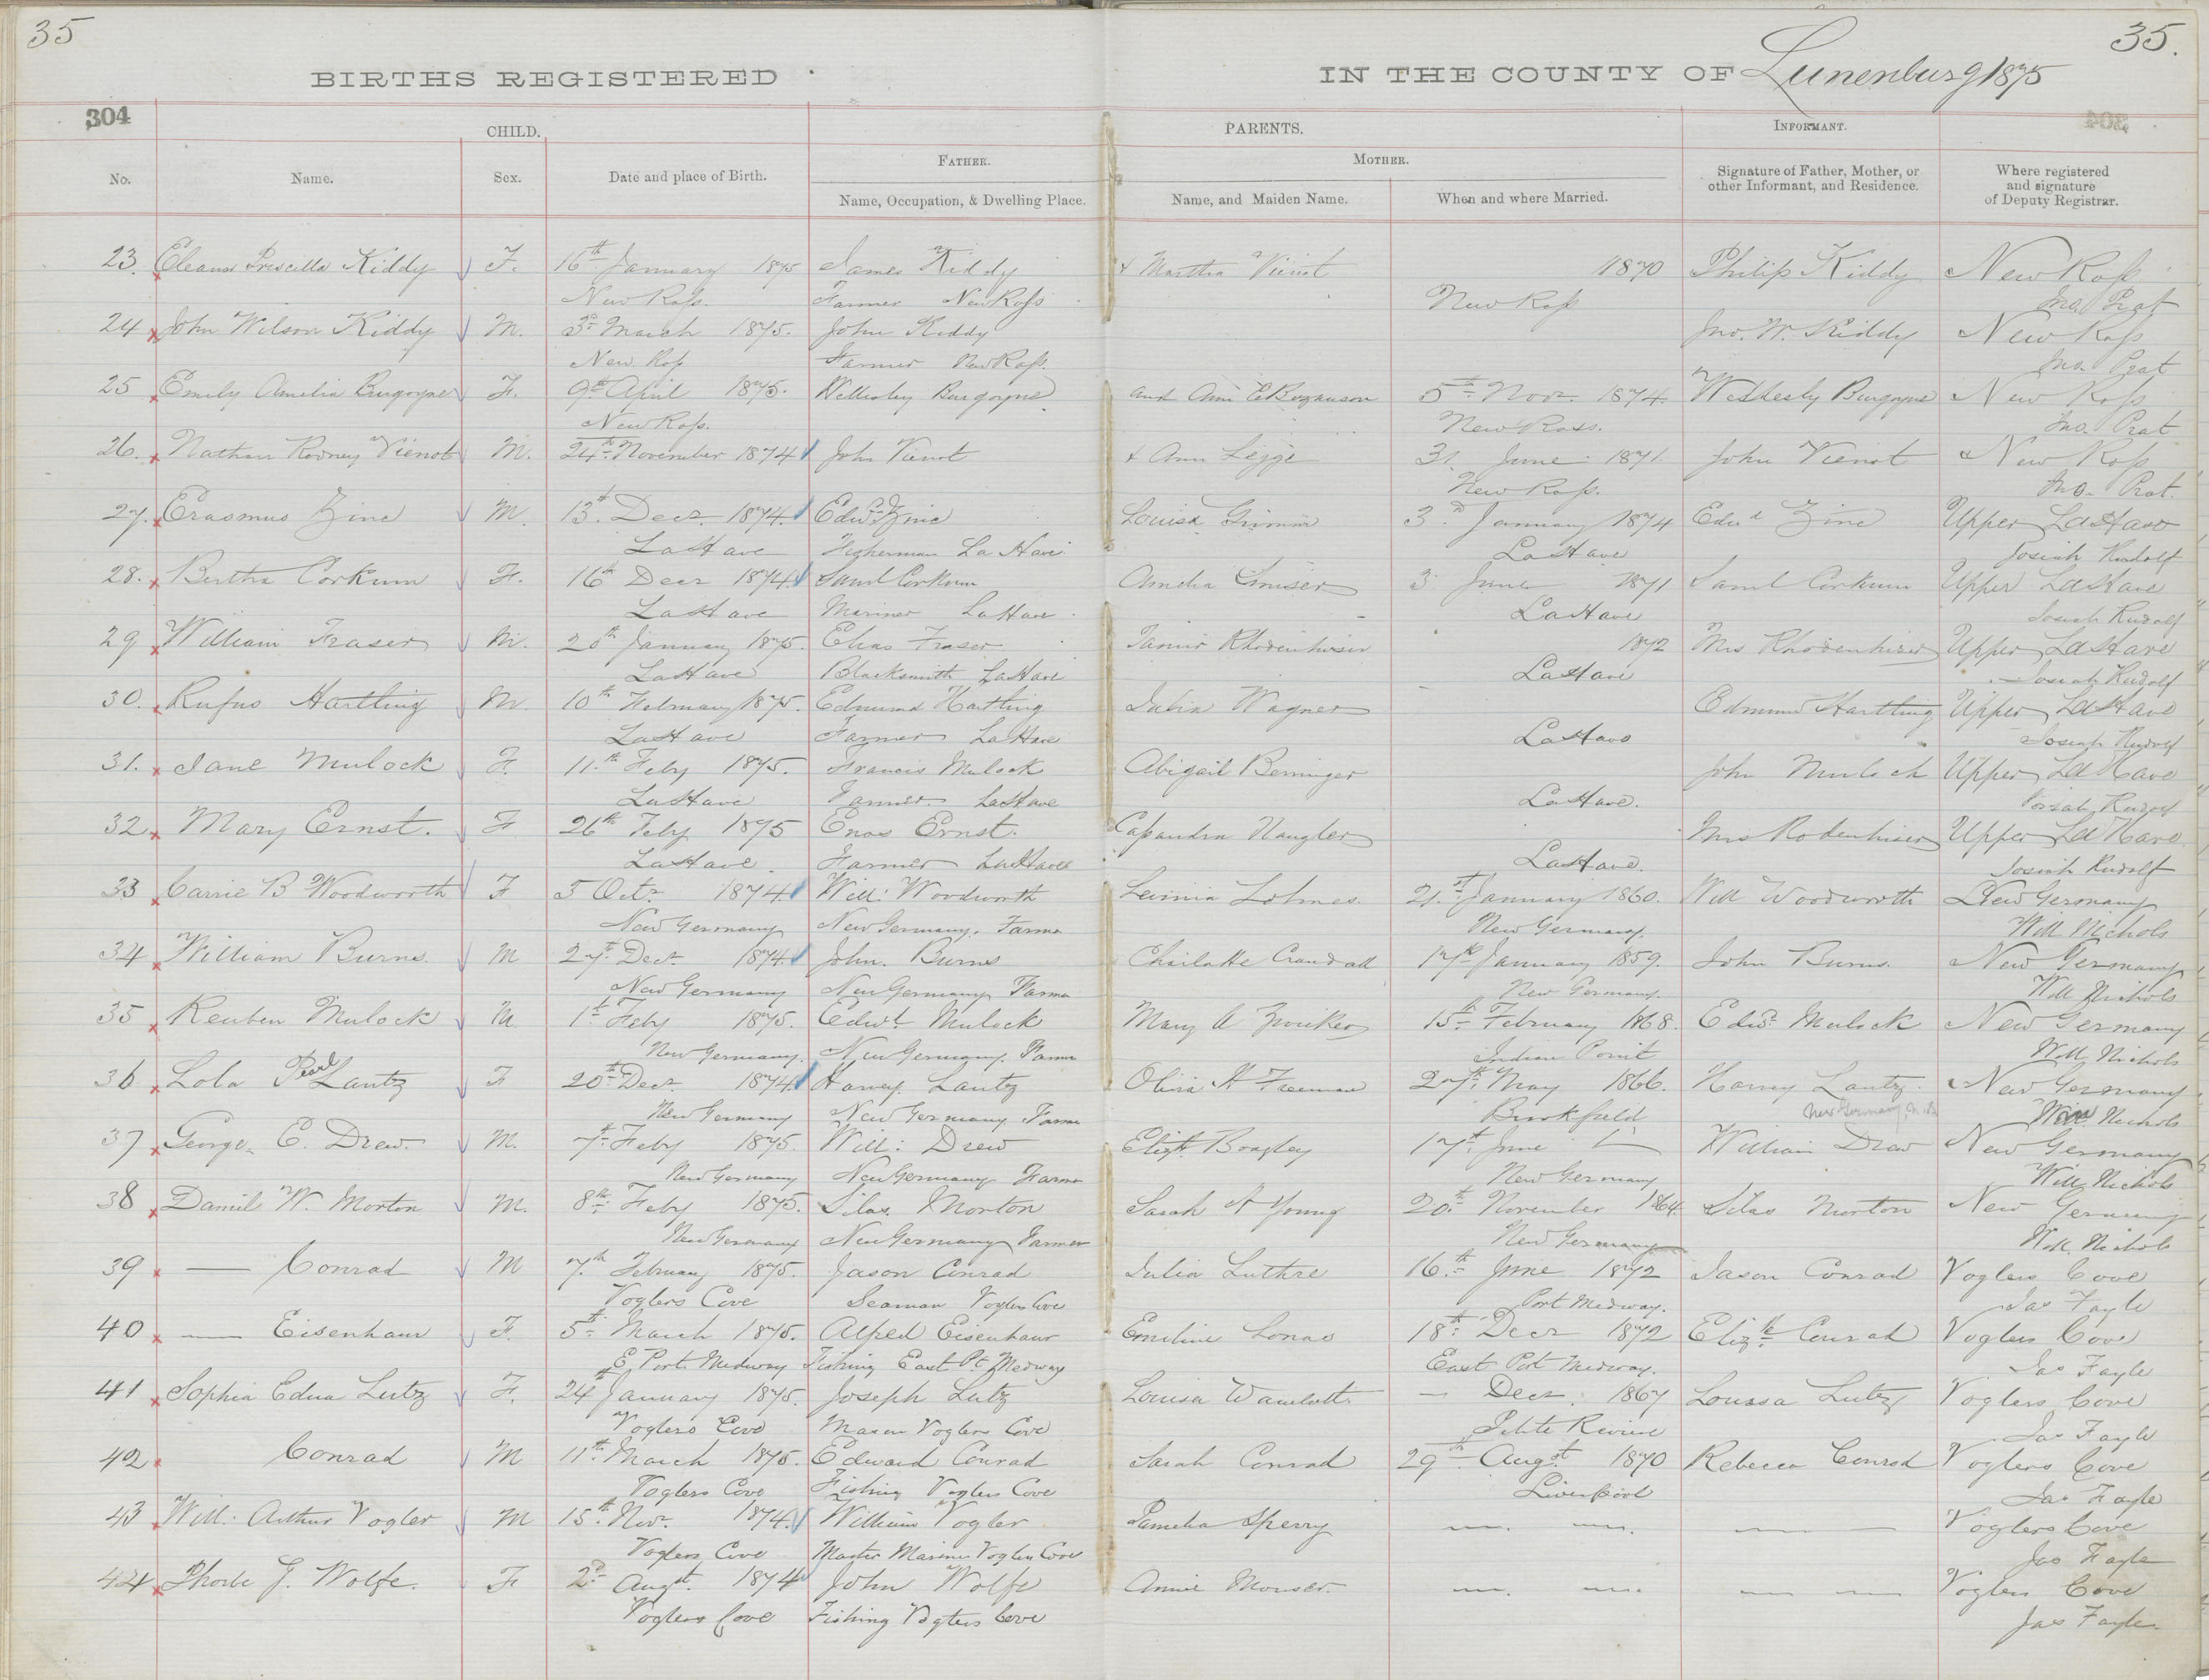 35
35.
BIRTHS REGISTERED
IN THE COUNTY OF Lunenburg 1875
304
CHILD.
PARENTS.
INFORMANT.
FATHER.
MOTHER.
No.
Name.
Sex.
Date and place of Birth.
Name, Occupation, & Dwelling Place.
Name, and Maiden Name.
When and where Married.
Signature of Father, Mother, or other Informant, and Residence.
Where registered and signature of Deputy Registrar.
23. Eleanor Priscilla Kiddy F. 16th January 1875 James Kiddy & Martha Vienot 1870 Philip Kiddy New Ross
New Ross. Farmer New Ross New Ross Jno. Prat
24 John Wilson Kiddy M. 3d March 1875. John Kiddy Jno. W. Kiddy New Ross
New Ross Farmer New Ross. Jno. Prat
25 Emily Amelia Burgoyne F. 9th April 1875. Wellesley Burgoyne and Ann E 5th Novr. 1874. Wellesley Burgoyne New Ross
New Ross. New Ross. Jno. Prat
26. Nathan Rodney Vienot M. 24th November 1874 John Vienot & Ann Legge 31. June 1871. John Vienot New Ross
New Ross. Jno. Prat.
27. Erasmus Zinc M. 13th Decr. 1874. Edwd. Zinc Louisa Grimm 3d January 1874 Edwd Zinc Upper LaHave
LaHave Fisherman La Have LaHave Josiah Rudolf
28. Bertha Corkum F. 16th Decr 1874. Saml Corkum Amelia 3 June 1871 Saml Corkum Upper LaHave
LaHave Mariner LaHave LaHave Josiah Rudolf
29 William Fraser M. 20th January 1875. Elias Fraser Rhodenhiser 1872 Mrs Rhodenhiser Upper LaHave
LaHave Blacksmith LaHave LaHave Josiah Rudolf
30. Rufus Hartling M. 10th February 1875. Edmund Hartling Julia Wagner Edmund Hartling Upper LaHave
LaHave Farmer LaHave LaHave Josiah Rudolf
31. Jane Mulock F. 11th Feby 1875. Francis Mulock Abigail Beninger John Mulock Upper LaHave
LaHave Farmer LaHave LaHave. Josiah Rudolf
32. Mary Ernst. F 26th Feby 1875 Enos Ernst. Cassandra Naugler Mrs Rodenhiser Upper LaHave
LaHave. Farmer LaHave LaHave. Josiah Rudolf
33 Carrie B Woodworth F 5 Octr. 1874. Will: Woodworth Lavinia 21st January 1860. Will Woodworth New Germany
New Germany New Germany. Farmer New Germany. Will Nichols
34 William Burns. M 27th Decr. 1874. John. Burns Charlotte Crandall 17th January 1859. John Burns. New Germany
New Germany New Germany Farmer New Germany. Will Nichols
35 Reuben Mulock M. 1st Feby 1875. Edwd. Mulock Mary A Zwicker 15th February 1868. Edwd. Mulock New Germany
New Germany. New Germany. Farmer Indian Point Will Nichols
36 Lola Pearl Lantz F 20th Decr 1874. Harvey Lantz Olivia H Freeman 27th May 1866. Harvey Lantz. New Germany
New Germany New Germany. Farmer Brookfield New Germany, N.S. Will Nichols
37 George E. Drew. M. 7th Feby 1875. Will: Drew Elizth. 17th June — William Drew New Germany
New Germany New Germany Farmer New Germany Will Nichols
38 Daniel W. Morton M. 8th Feby 1875. Silas Morton Sarah A Young 20th November 1864. Silas Morton New Germany
New Germany New Germany Farmer New Germany Will Nichols
39 — Conrad M 7th February 1875. Jason Conrad Julia 16th June 1872 Jason Conrad Voglers Cove
Voglers Cove Seaman Voglers Cove Port Medway. Jas Fayle
40 — Eisenhaur F. 5th March 1875. Alfred Eisenhaur Emiline 18th Decr 1872 Elizth. Conrad Voglers Cove
E. Port Medway Fishing East Pt Medway East Port Medway. Jas Fayle
41 Sophia Edna Lutz F. 24 January 1875. Joseph Lutz Louisa — Decr. 1867 Louisa Lutz Voglers Cove
Voglers Cove Mason Voglers Cove Petite Riviere Jas Fayle
42 Conrad M 11th March 1875. Edward Conrad Sarah Conrad 29th Augst 1870 Rebecca Conrad Voglers Cove
Voglers Cove Fishing Voglers Cove Liverpool Jas Fayle
43 Will. Arthur Vogler M 15th Novr. 1874. William Vogler Pamelia Sperry —. —. — — Voglers Cove
Voglers Cove Master Mariner Voglers Cove Jas Fayle
44 Phoebe J. Wolfe. F 2d Augst. 1874 John Wolfe Annie Mouser —. —. — — Voglers Cove
Voglers Cove Fishing Voglers Cove Jas Fayle.